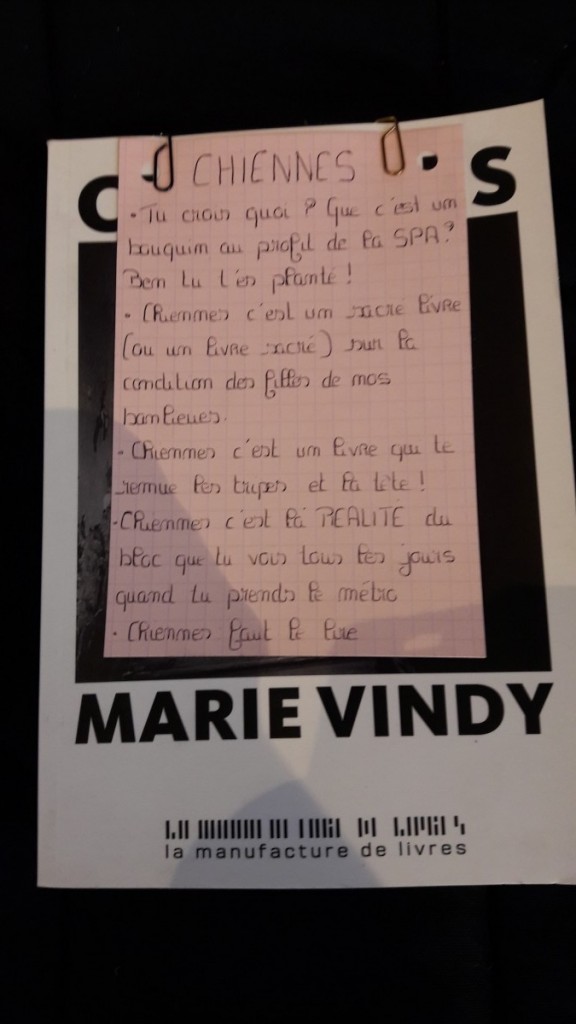 C S
CHIENNES
• Tu crois quoi ? Que c'est un
bouquin au profil de la SPA?
Ben tu t'es planté !
• Chiennes c'est un sacré livre
(ou un livre sacré) sur la
condition des filles de nos
banlieues.
• Chiennes c'est un livre qui te
remue les tripes et la tête !
• Chiennes c'est la REALITE du
bloc que tu vois tous les jours
quand tu prends le métro
• Chiennes faut le lire
MARIE VINDY
la manufacture de livres